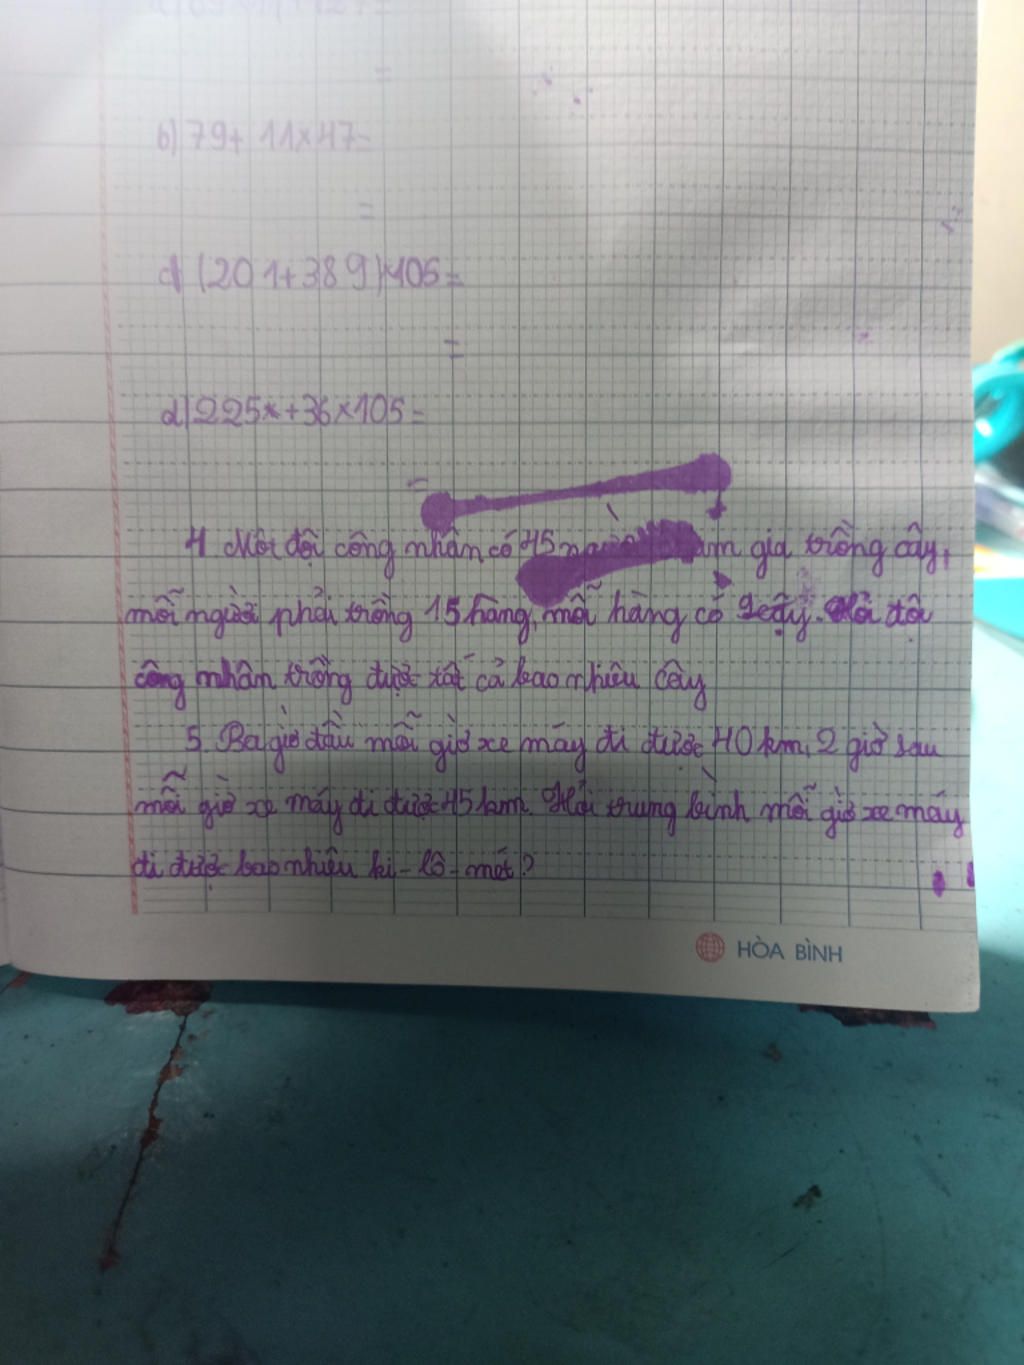 b) 79 + 11 x 47 =
=
c) (201 + 389) x 105 =
=
d) 225 x + 36 x 105 =
=
4 Một đội công nhân có 45 người gia trồng cây,
mỗi người phải trồng 15 hàng, mỗi hàng có 9 cây. Hỏi đội
công nhân trồng được tất cả bao nhiêu cây
5. Ba giờ đầu mỗi giờ xe máy đi được 40 km, 2 giờ sau
mỗi giờ xe máy đi được 45 km. Hỏi trung bình mỗi giờ xe máy
đi được bao nhiêu ki - lô - mét ?
HÒA BÌNH